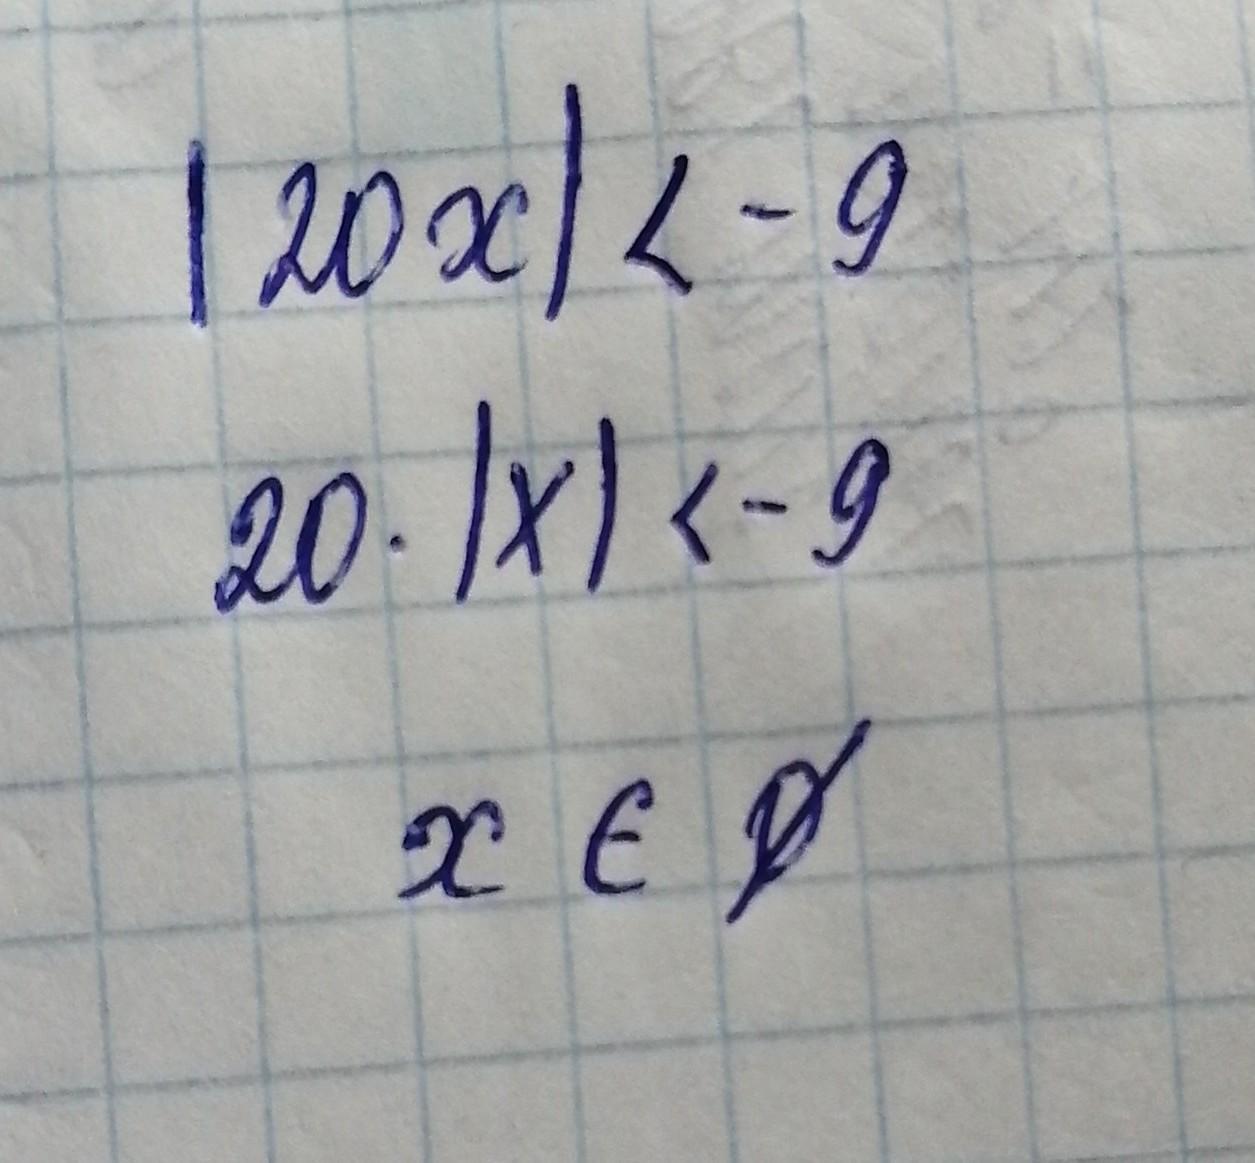 |20x| < -9
20 · |x| < -9
x ∈ ∅